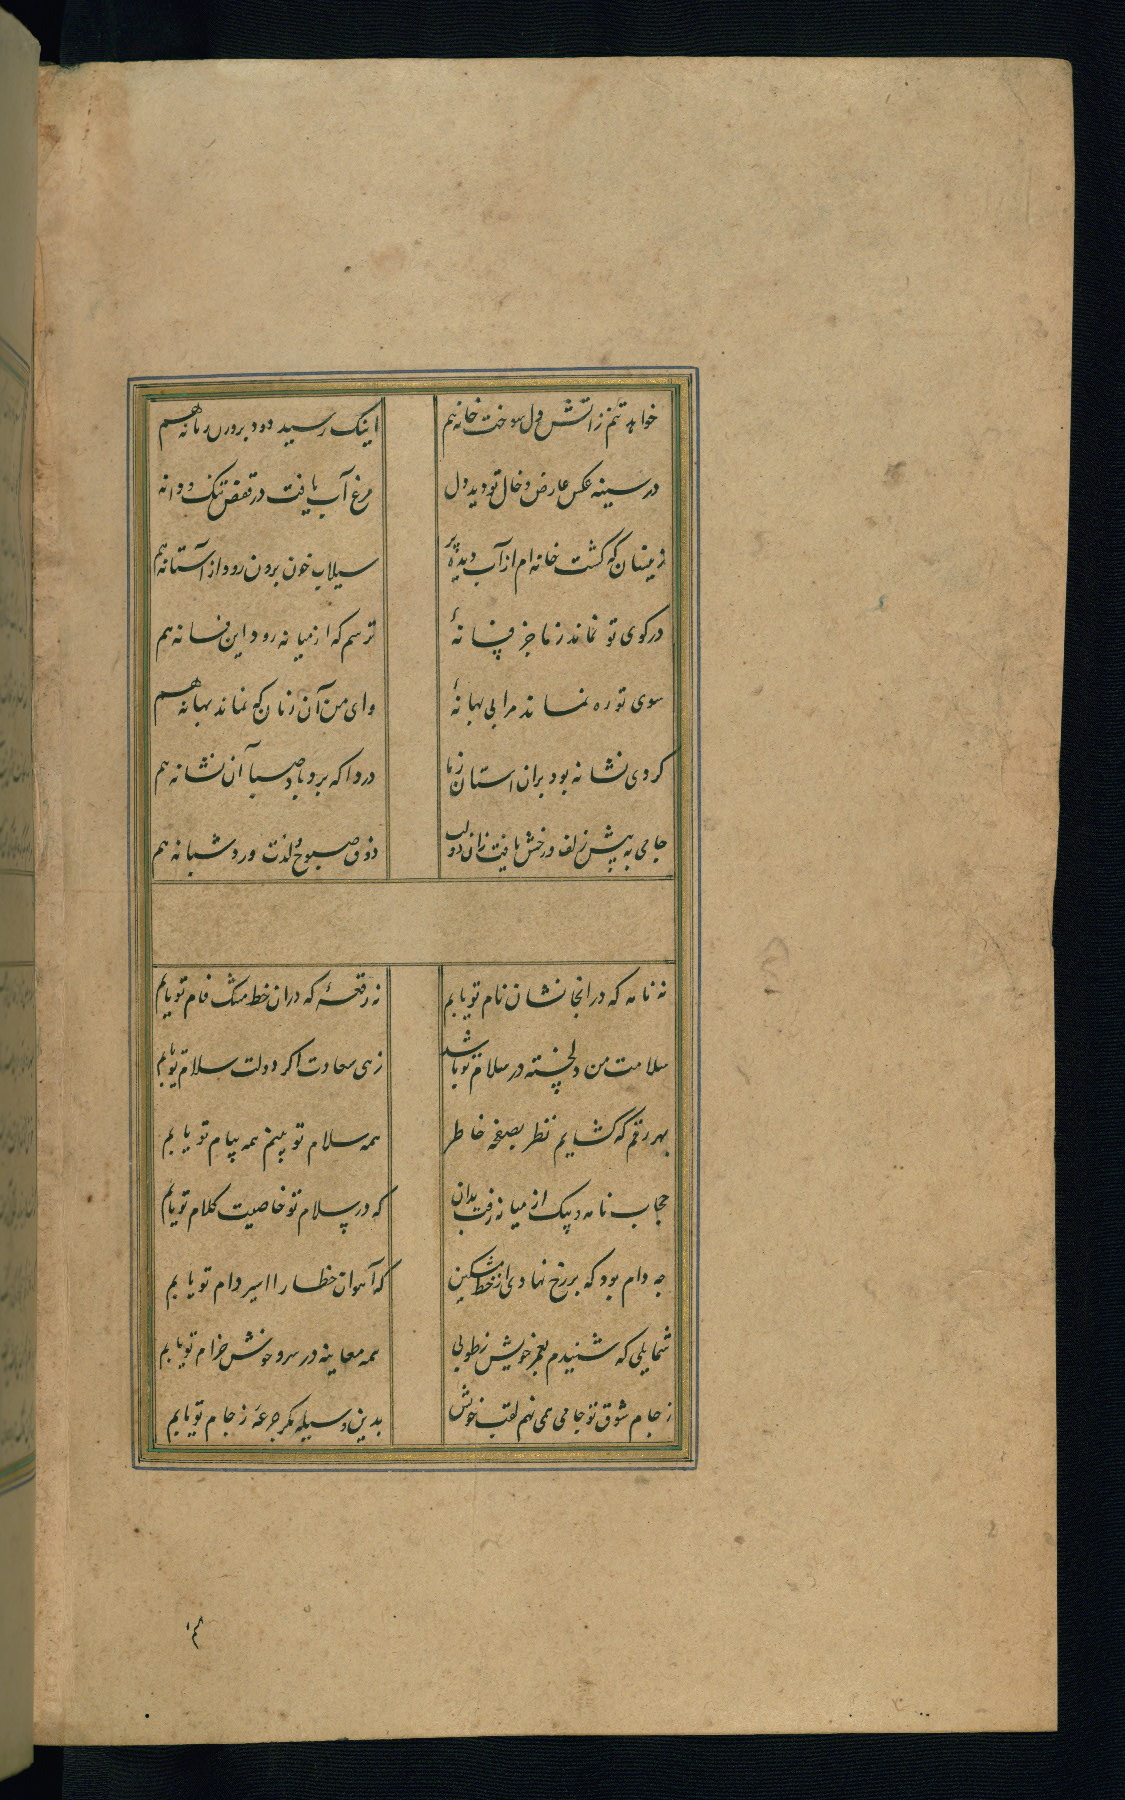 خواهد تنم ز آتش دل سوخت خانه هم
اینک رسید دود برون
در سینه عکس عارض و خال تو دید دل
مرغ آب یافت در قفس تنگ و دانه
زینسان که گشت خانه ام از آب دیده پر
سیلاب خون برون رود از آستانه هم
در کوی تو نماند ز ما جز فسانهٔ
ترسم که از میانه رود این فسانه هم
سوی تو ره نماند مرا بی بهانهٔ
وای من آن زمان که نماند بهانه هم
کردی نشانه بود بران استان ز ما
دردا که برد باد صبا آن نشانه هم
جامی به پیش زلف و رخش یافت زان دو لب
ذوق صبوح و لذت ورد شبانه هم
نه نامه که در انجا نشان نام تو یابم
نه رقعهٔ که دران خط مشک فام تو یابم
سلامت من دلخسته در سلام تو باشد
زهی سعادت اکر دولت سلام تو یابم
بهر رقم که کشایم نظر بصفحه خاطر
همه سلام تو بینم همه پیام تو یابم
حجاب نامه و پیک از میانه رفت بدان
که در سلام تو خاصیت کلام تو یابم
چه دام بود که بر رخ نهادی از خط مشکین
که آهوان خطا را اسیر دام تو یابم
شمایلی که شنیدم بعمر خویش ز طوبی
همه معاینه در سرو خوش خرام تو یابم
ز جام شوق تو جامی می نهم لقب خویش
بدین وسیله مکر جرعهٔ ز جام تو یابم